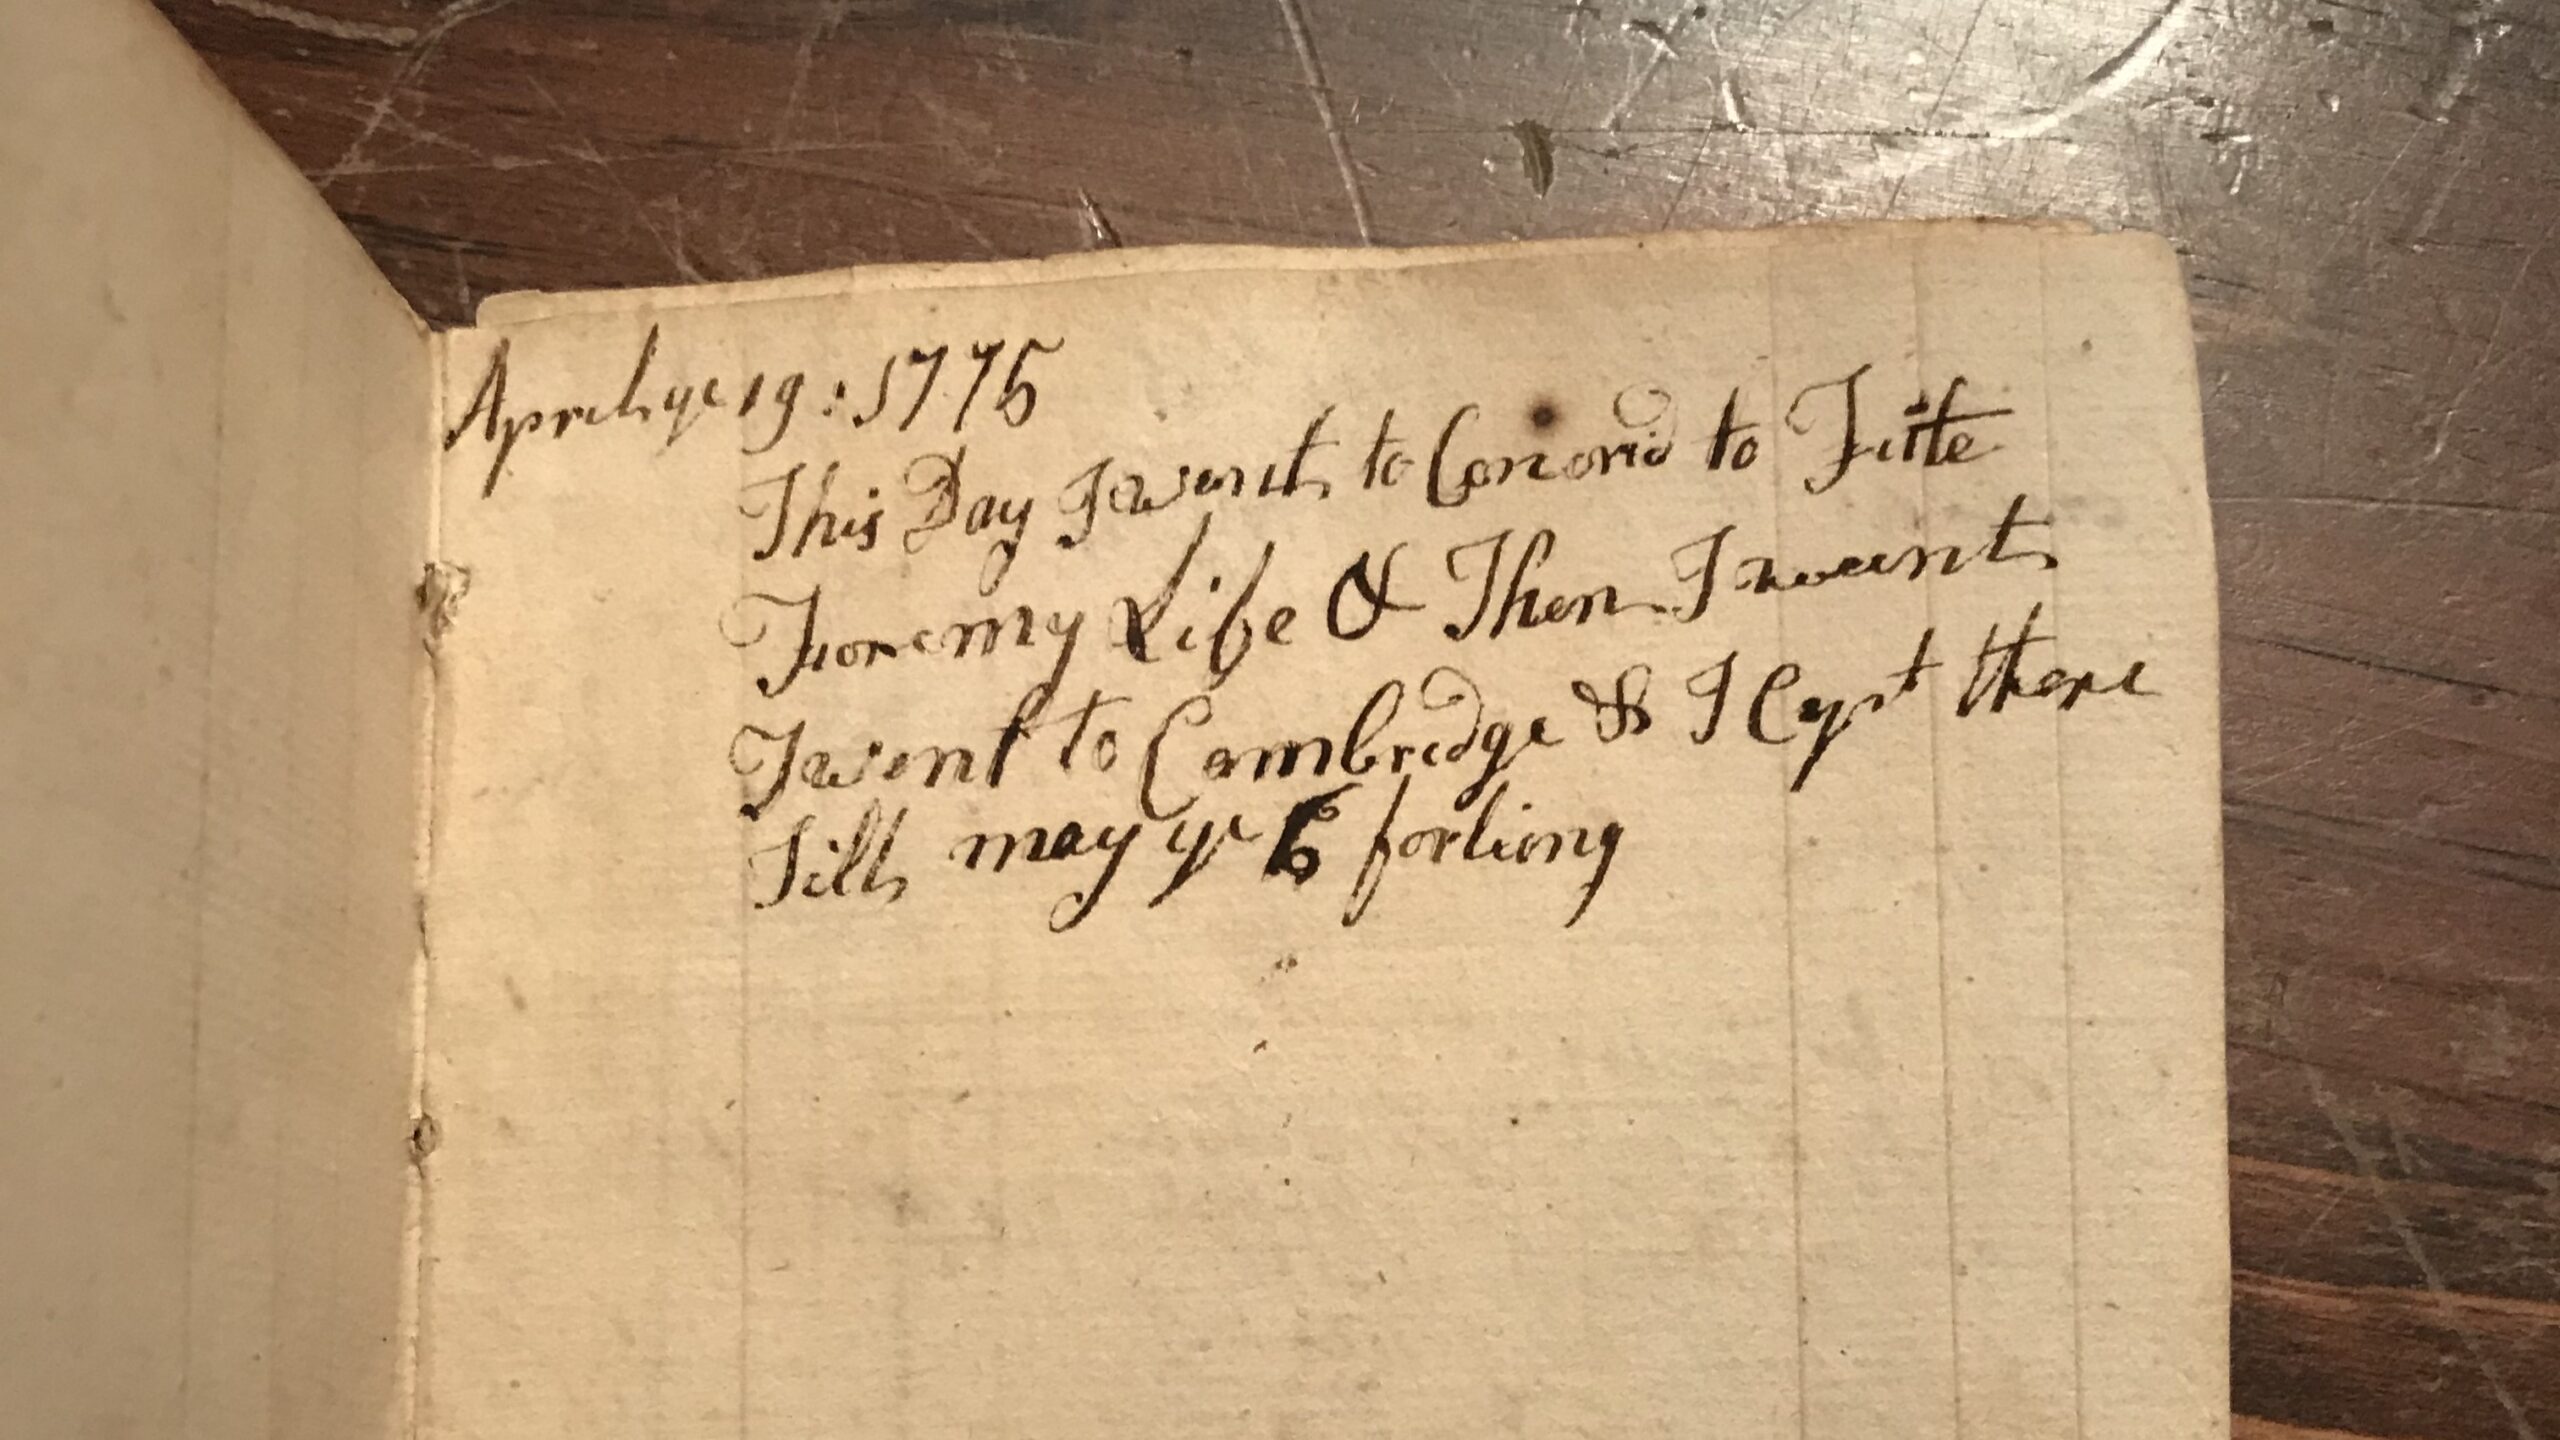 April ye 19: 1775
This Day I went to Concord to Fite
Fore my Life & Then I went
I went to Cambridge & I Cept there
Till may ye 6 forliong